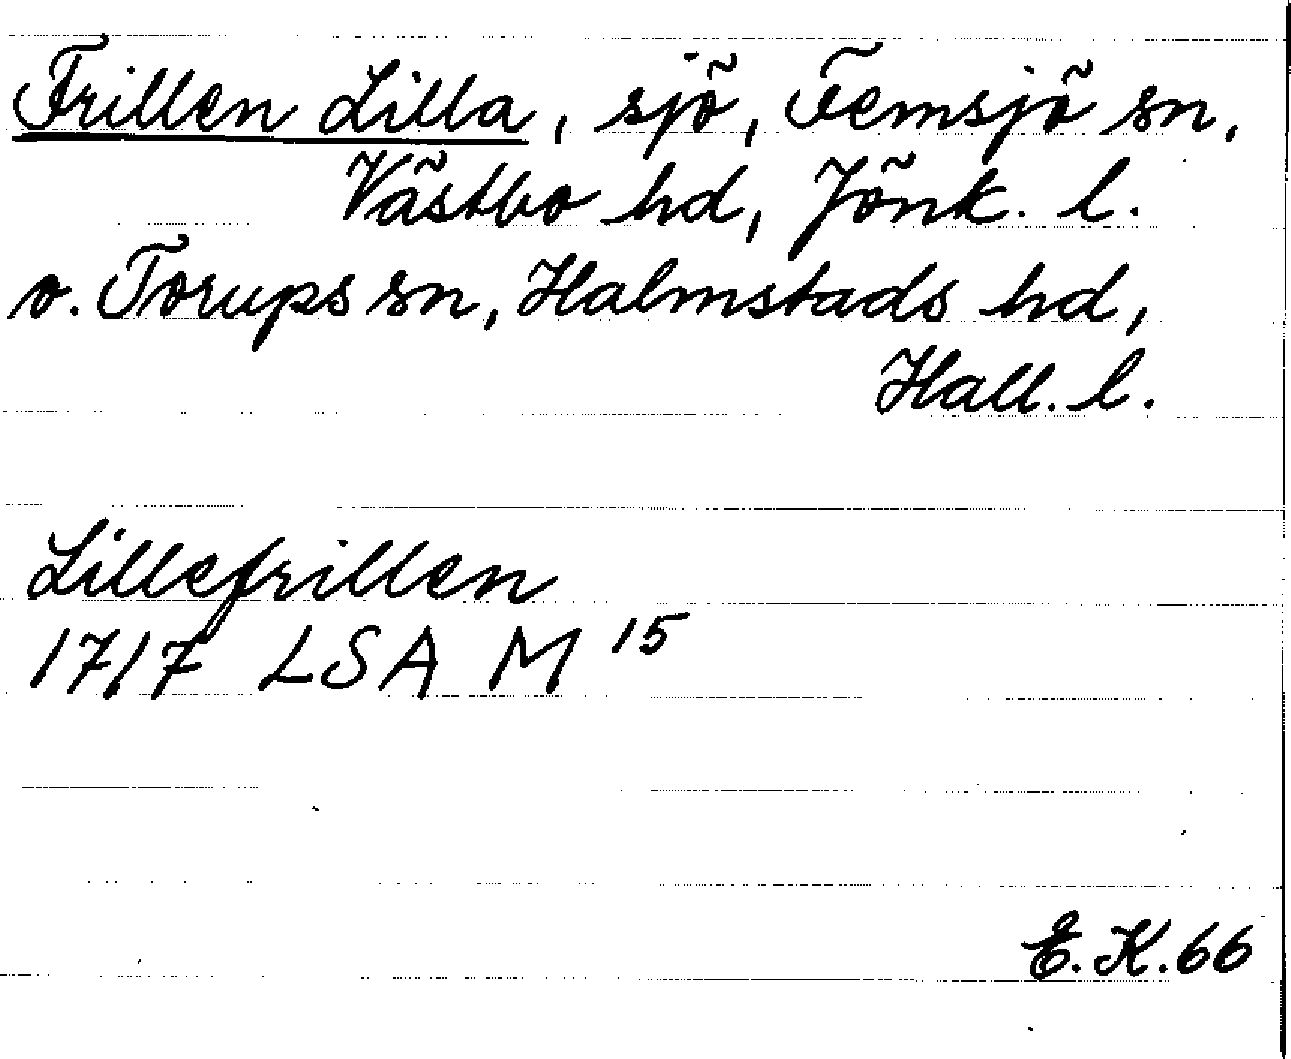 Frillen Lilla, sjö, Femsjö sn,
Västbo hd, Jönk. l.
o. Torups sn, Halmstads hd,
Hall. l.
Lillefrillen
1717 LSA M 15
E. K. 66